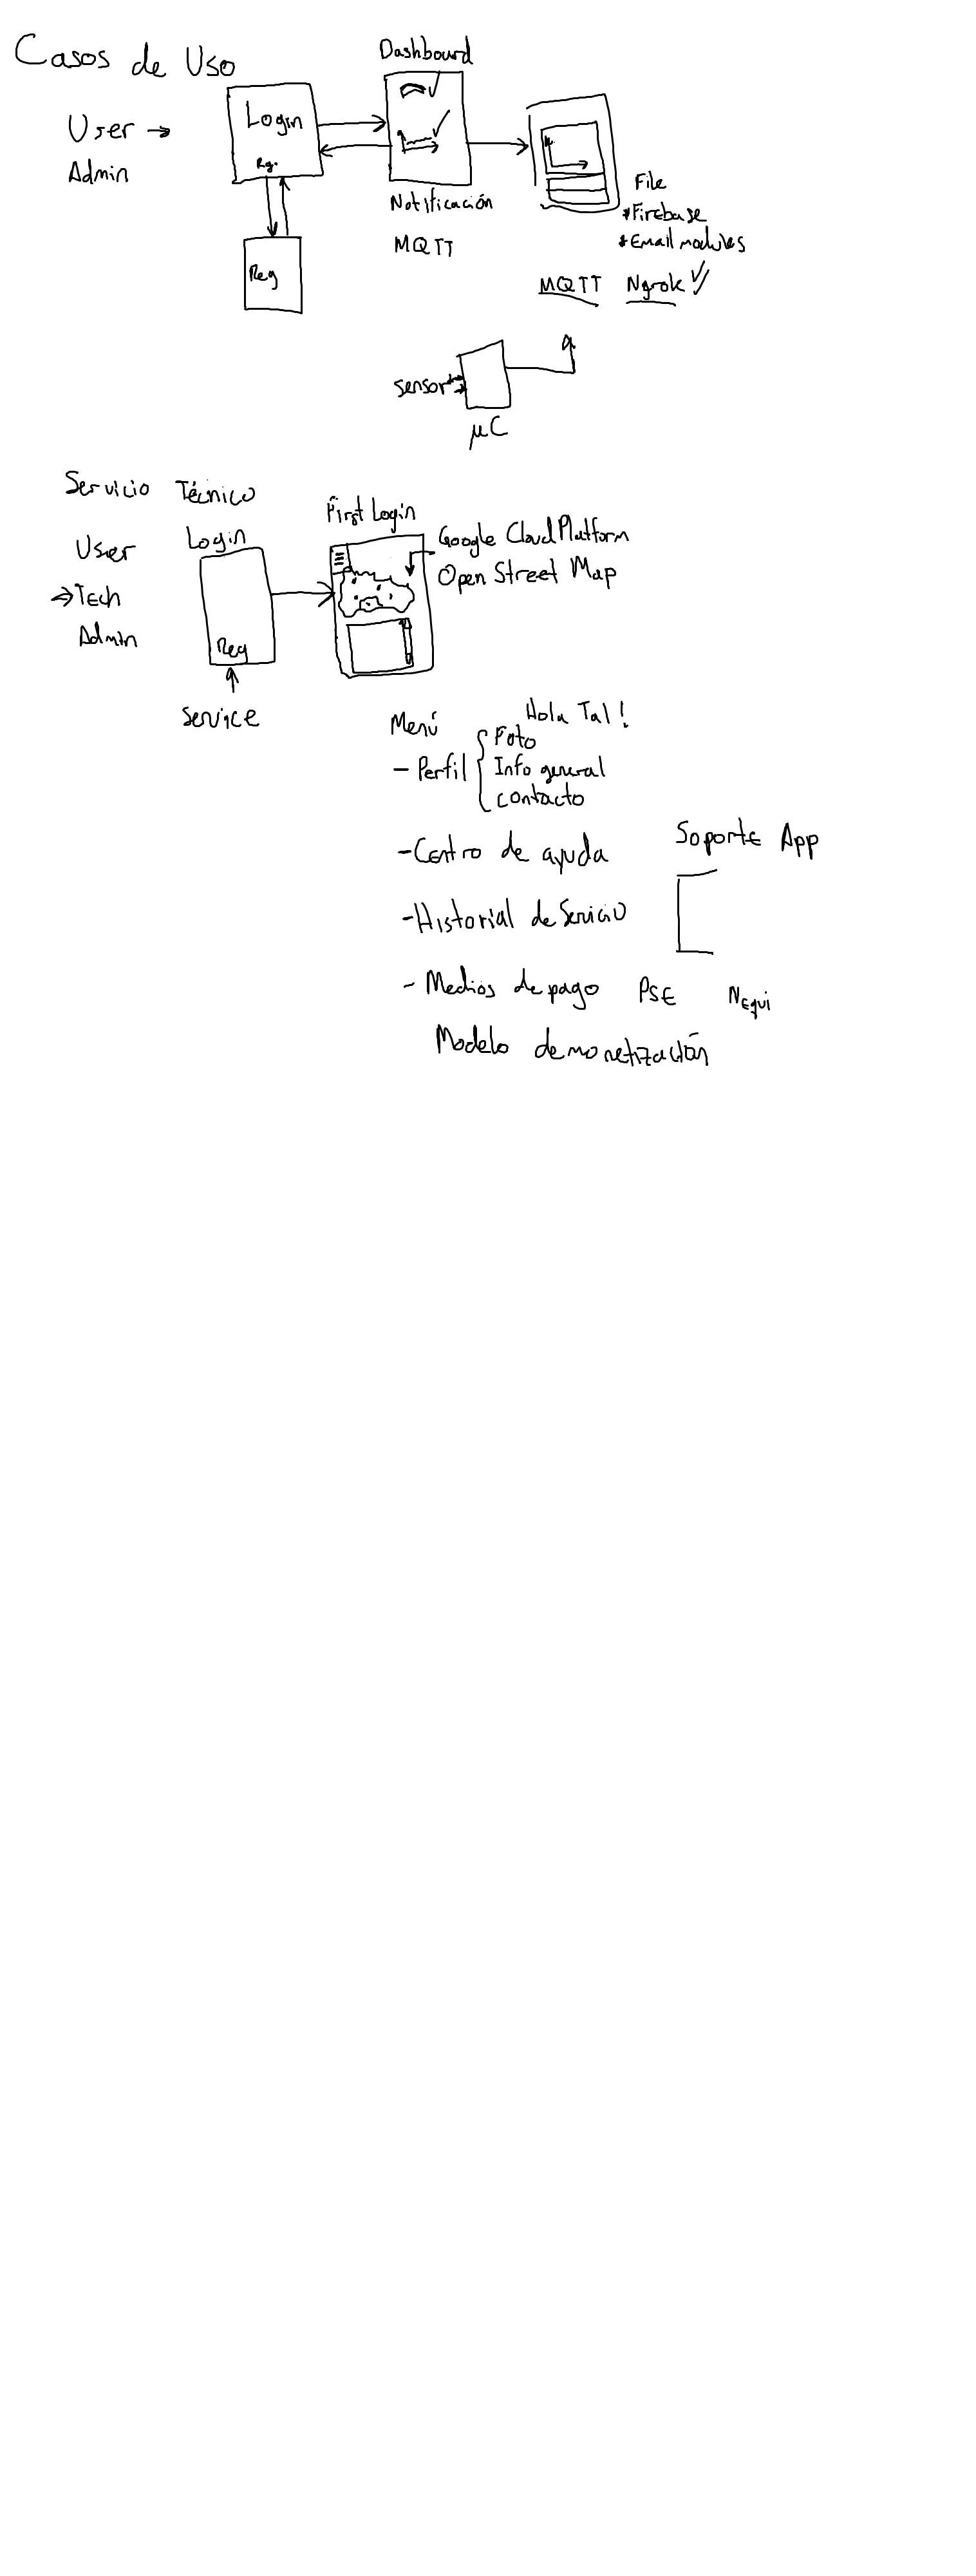 Casos de Uso
User →
Admin
Login
Reg.
Reg
Dashboard
Notificación
MQTT
File
*Firebase
*Email modules
MQTT Ngrok
sensor
μC
Servicio Técnico
User
→Tech
Admin
Login
Reg
Service
First Login
Google Cloud Platform
Open Street Map
Menú
Hola Tal!
- Perfil
Foto
Info general
contacto
- Centro de ayuda
Soporte App
- Historial de Servicio
- Medios de pago PSE Nequi
Modelo de monetización